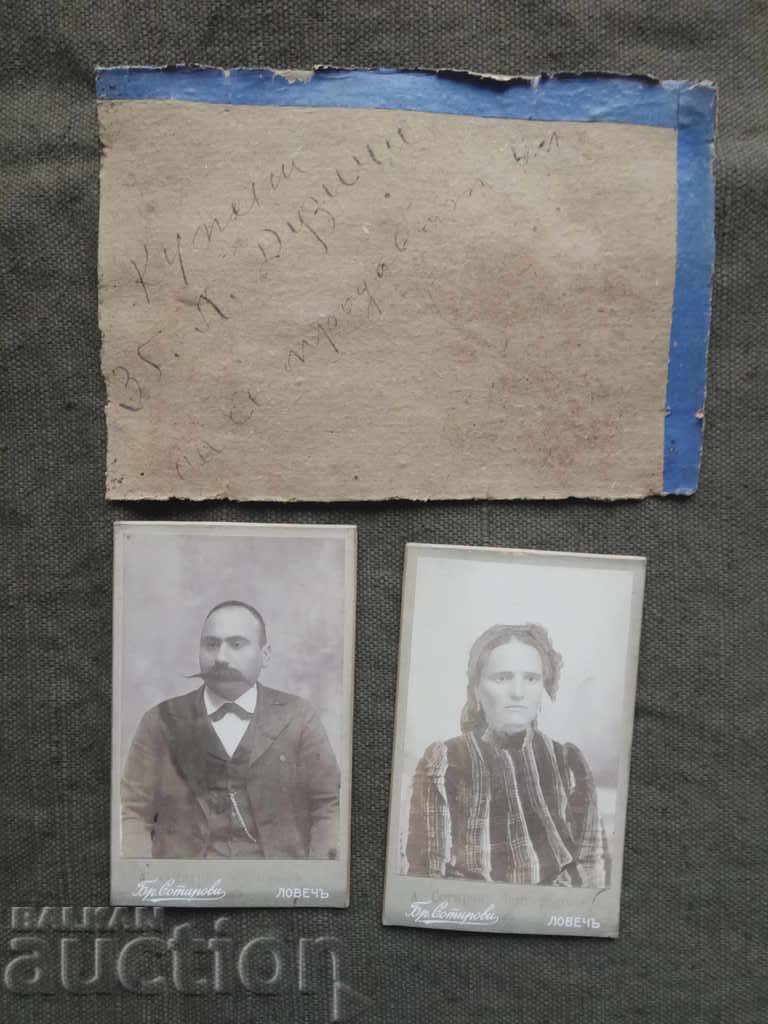 Купени
35.
да се продават
Бр. Сотирови ЛОВЕЧЪ
Бр. Сотирови ЛОВЕЧЪ
BALKAN
auction